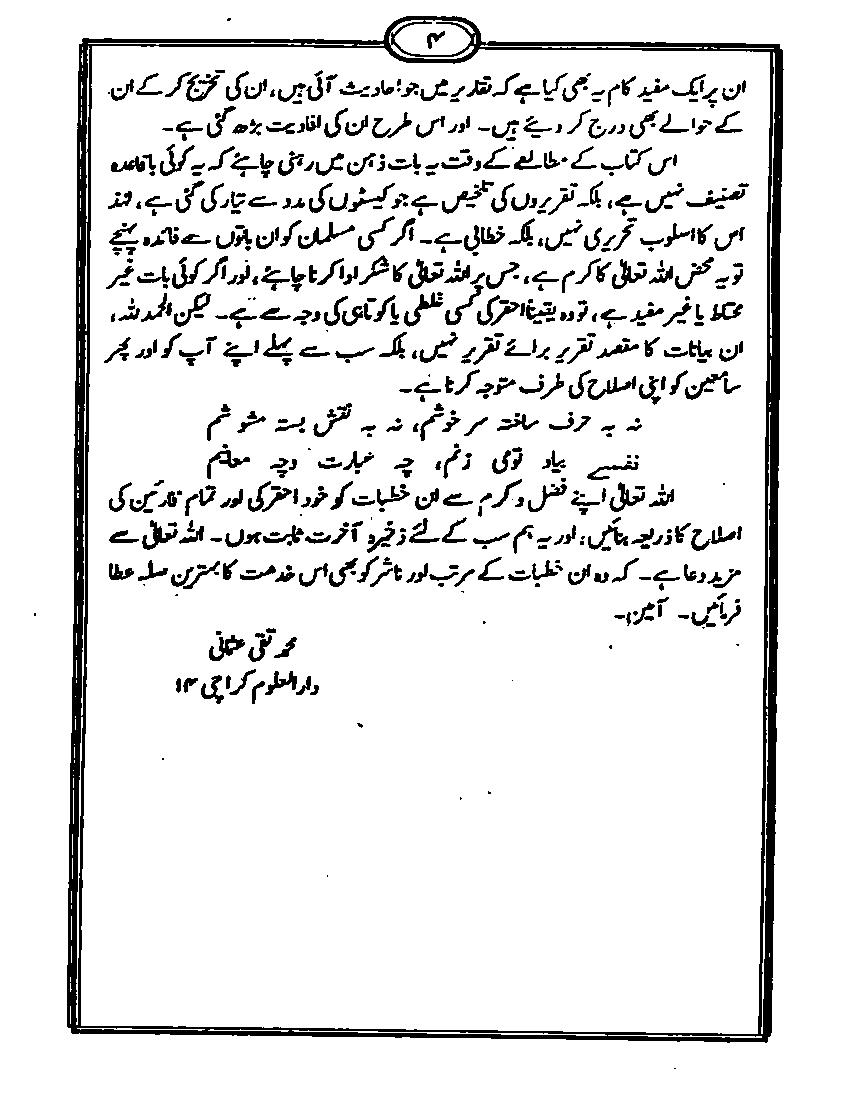 ۴
ان پر ایک مفید کام یہ بھی کیا ہے کہ تقاریر میں جو احادیث آئی ہیں، ان کی تخریج کر کے ان
کے حوالے بھی درج کر دیئے ہیں۔ اور اس طرح ان کی افادیت بڑھ گئی ہے۔
اس کتاب کے مطالعے کے وقت یہ بات ذہن میں رہنی چاہئے کہ یہ کوئی باقاعدہ
تصنیف نہیں ہے، بلکہ تقریروں کی تلخیص ہے جو کیسٹوں کی مدد سے تیار کی گئی ہے، لہٰذا
اس کا اسلوب تحریری نہیں، بلکہ خطابی ہے۔ اگر کسی مسلمان کو ان باتوں سے فائدہ پہنچے
تو یہ محض اللہ تعالیٰ کا کرم ہے، جس پر اللہ تعالیٰ کا شکر ادا کرنا چاہئے، اور اگر کوئی بات غیر
محتاط یا غیر مفید ہے، تو وہ یقیناً احقر کی کسی غلطی یا کوتاہی کی وجہ سے ہے۔ لیکن الحمد للہ،
ان بیانات کا مقصد تقریر برائے تقریر نہیں، بلکہ سب سے پہلے اپنے آپ کو اور پھر
سامعین کو اپنی اصلاح کی طرف متوجہ کرنا ہے۔
نہ بہ حرف ساختہ سر خوشم، نہ بہ نقش بستہ مشوشم
نفسے بیاد تومی زنم، چہ عبارت وچہ معانیم
اللہ تعالیٰ اپنے فضل و کرم سے ان خطبات کو خود احقر کی اور تمام قارئین کی
اصلاح کا ذریعہ بنائیں، اور یہ ہم سب کے لئے ذخیرہ آخرت ثابت ہوں۔ اللہ تعالیٰ سے
مزید دعا ہے۔ کہ وہ ان خطبات کے مرتب اور ناشر کو بھی اس خدمت کا بہترین صلہ عطا
فرمائیں۔ آمین۔
محمد تقی عثمانی
دار العلوم کراچی ۱۴